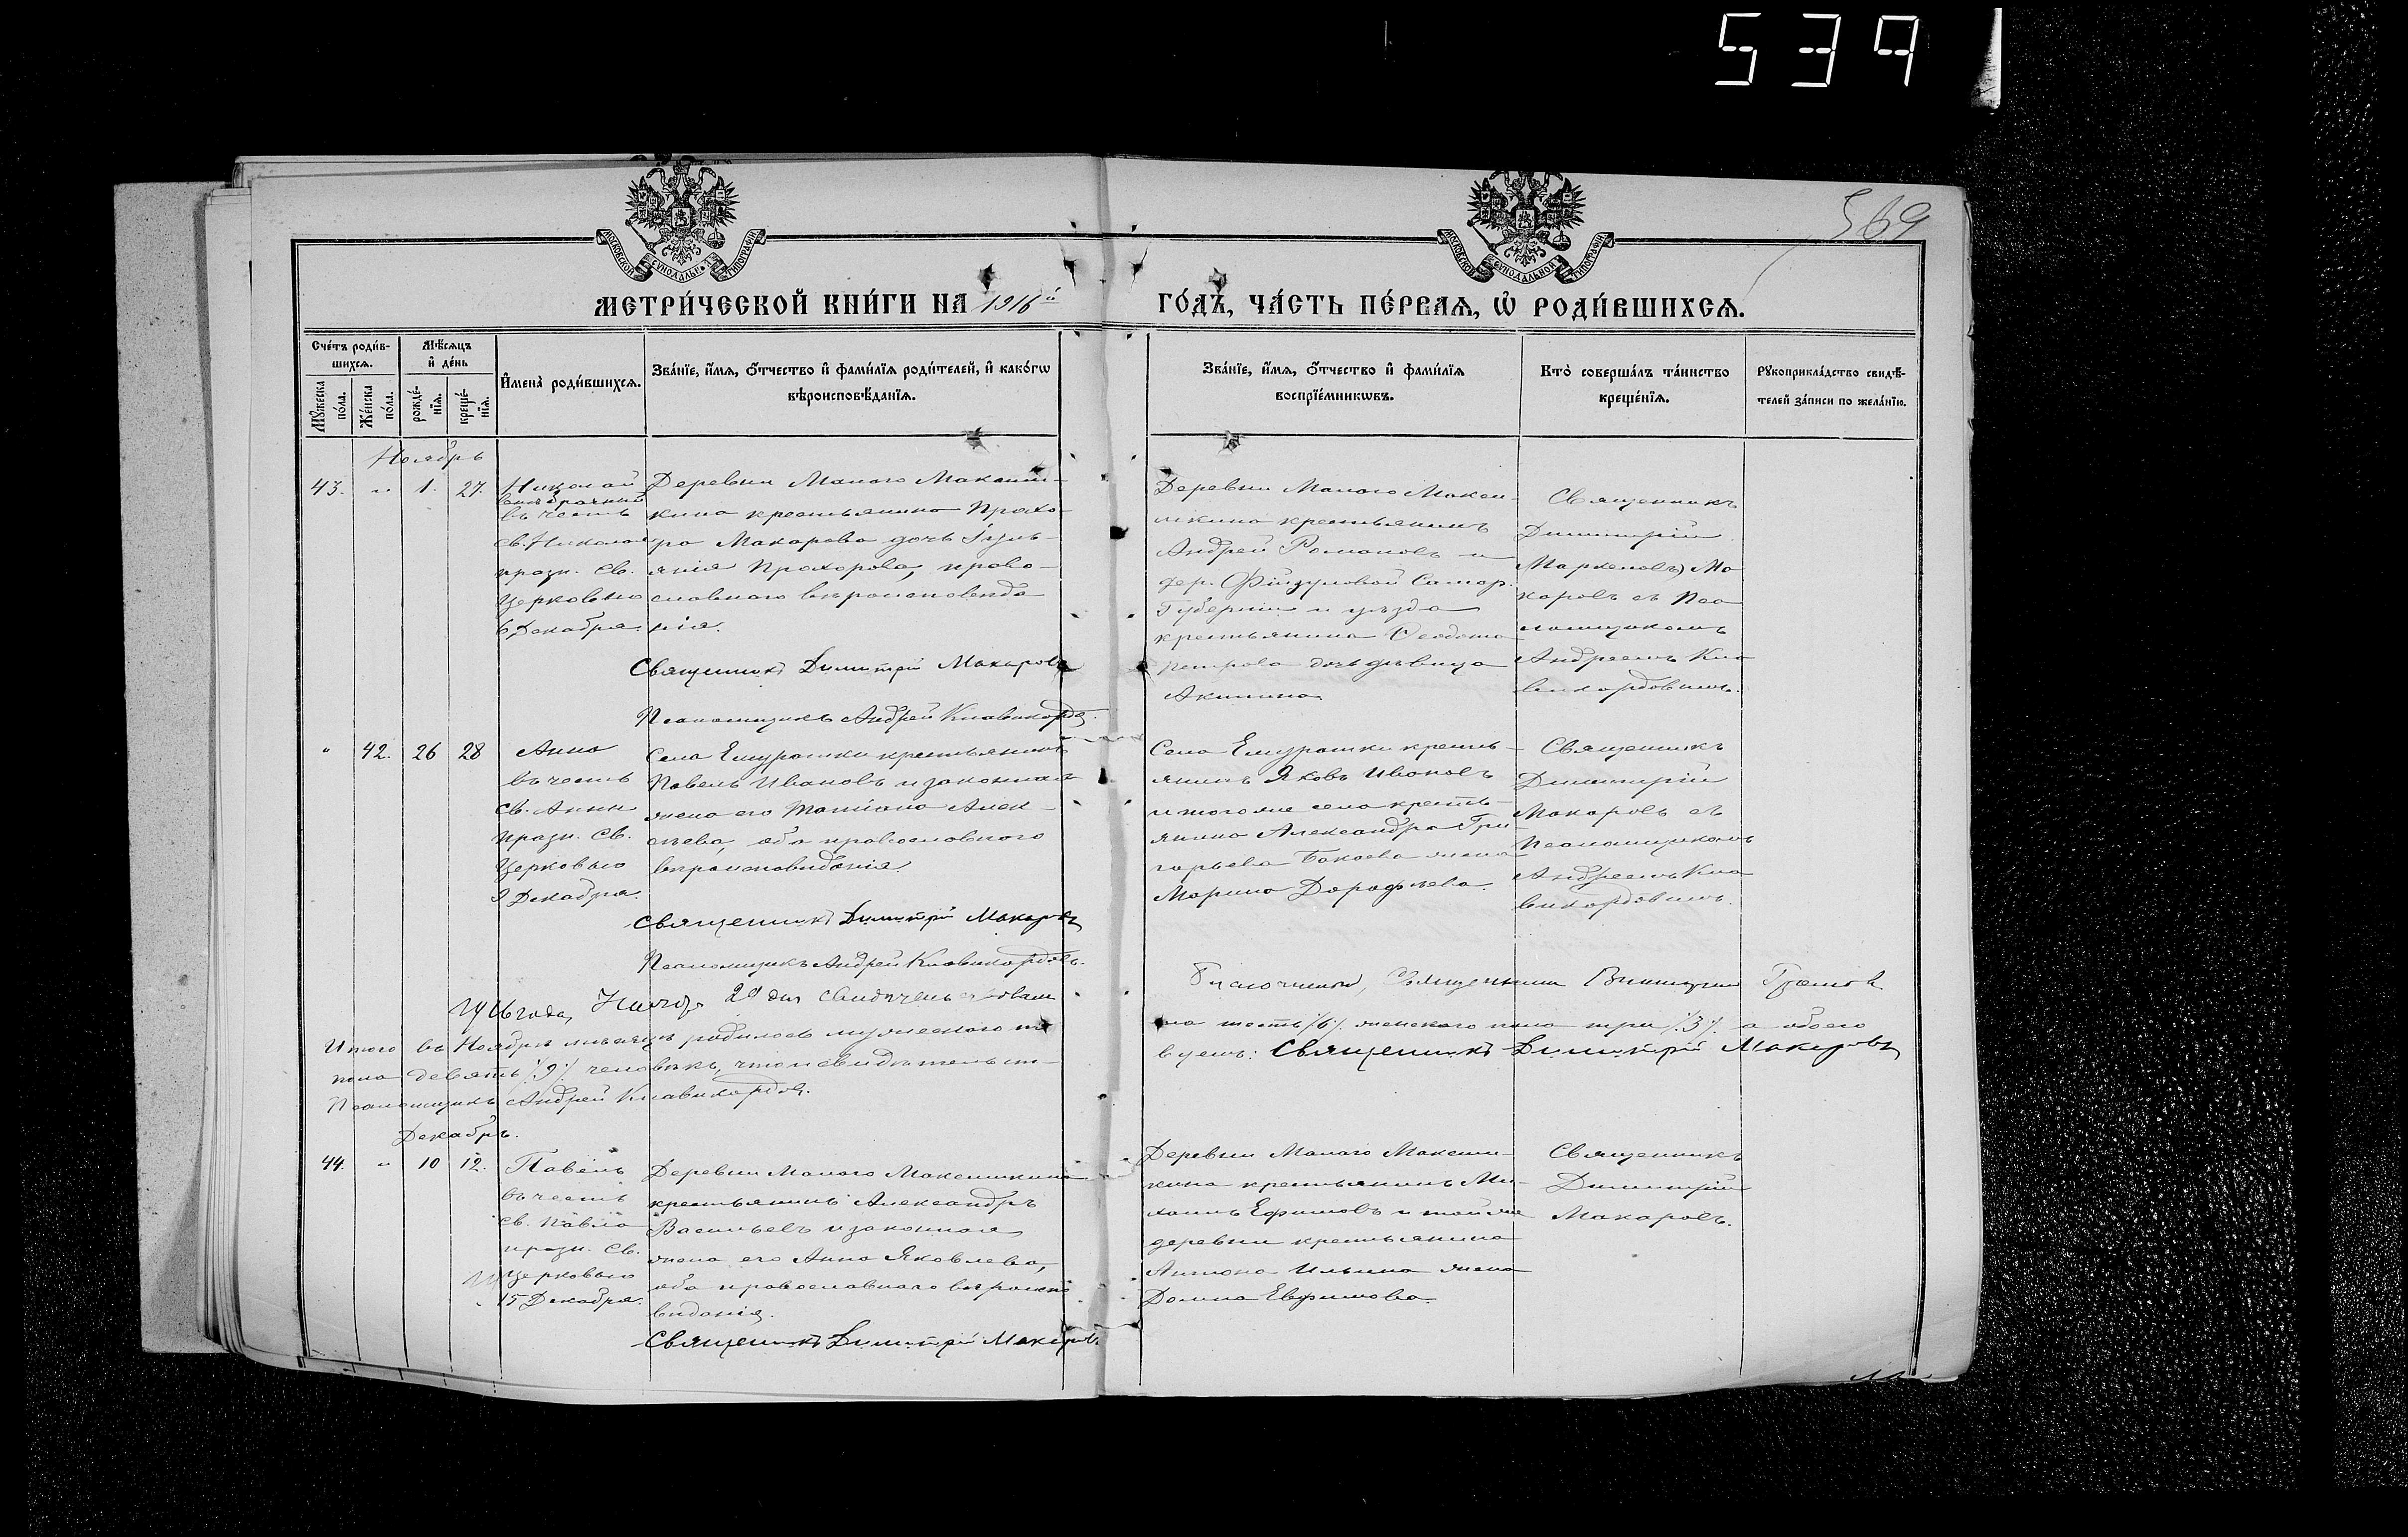 539
569
МОСКОВСКОЙ СУНОДАЛЬНОЙ ТИПОГРАФІИ
МОСКОВСКОЙ СУНОДАЛЬНОЙ ТИПОГРАФІИ
МЕТРИ́ЧЕСКОЙ КНИ́ГИ НА 1916й ГО́ДЪ, ЧА́СТЬ ПЕ́РВАѦ, Ѡ҆ РОДИ́ВШИХСѦ.
Сче́тъ роди́в-
шихсѧ.
Мꙋ́жеска по́ла.
Же́нска по́ла.
Мѣ́сѧцъ
и҆ де́нь
рожде́-
нїѧ.
креще́-
нїѧ.
И҆мена̀ роди́вшихсѧ.
Зва́нїе, и҆́мѧ, ѻ҆́тчество и҆ фами́лїѧ роди́телей, и҆ како́гѡ
вѣ́роисповѣ́данїѧ.
Зва́нїе, и҆́мѧ, ѻ҆́тчество и҆ фами́лїѧ
воспрїе́мникѡвъ.
Кто̀ соверша́лъ та́инство
креще́нїѧ.
Рꙋкоприкла́дство свидѣ́-
телей за́писи по жела́нїю.
Ноябрь
43. „ 1. 27.
Николай
внебрачный
въ честь
св. Николая
празн. Св.
Церковью
6 Декабря.
Деревни Малого Максим-
кина крестьянина Прохо-
ра Макарова дочь Іуль-
янія Прохорова, право-
славнаго вѣроисповѣда
нія.
Священникъ Димитрій Макаровъ
Псаломщикъ Андрей Клавикордовъ.
Деревни Малого Макси-
мкина крестьянинъ
Андрей Романовъ и
дер. Файзуловой Самар.
Губерніи и уѣзда
крестьянина Ѳеодота
Петрова дочь дѣвица
Акилина
Священникъ
Димитрій
Макаровъ съ Пса
ломщикомъ
Андреемъ Кла
викордовымъ.
„ 42. 26 28
Анна
въ честь
Св. Анны
празн. Св.
Церковью
9 Декабря.
Села крестьянинъ
Павелъ Ивановъ и законная
жена его Татіана Алек-
сѣева, оба православнаго
вѣроисповѣданія.
Священникъ Димитрій Макаровъ
Псаломщикъ Андрей Клавикордовъ.
Села кресть-
янинъ Яковъ Ивановъ
и того же села кресть-
янина Александра Гри
горьева Бакаева жена
Марина Дорофѣева.
Священникъ
Димитрій
Макаровъ съ
Псаломщикомъ
Андреемъ Кла
викордовымъ.
1916 года, 20 дня
Благочинный, Священникъ
Итого въ Ноябрѣ мѣсяцѣ родилось мужескаго по
ла шесть /6/ женскаго пола три /3/ а обоего
пола девять /9/ человѣкъ, что и свидѣтельст-
вуемъ: Священникъ Димитрій Макаровъ
Псаломщикъ Андрей Клавикордовъ.
Декабрь.
44. „ 10 12.
Павелъ
въ честь
св. Павла
празн. Св.
Церковью
15 Декабря.
Деревни Малого Максимкина
крестьянинъ Александръ
Васильевъ и законная
жена его Анна Яковлева,
оба православнаго вѣроиспо
вѣданія.
Священникъ Димитрій Макаровъ.
Деревни Малого Максим-
кина крестьянинъ Ми-
хаилъ Ефимовъ и той же
деревни крестьянина
Антона Ильина жена
Домна Евфимова.
Священникъ
Димитрій
Макаровъ.